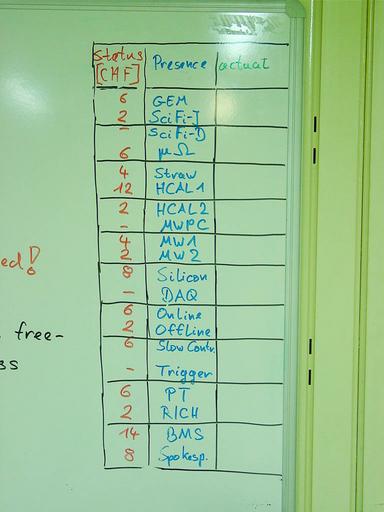 Status Presence actual
[CHF]
6 GEM
2 SciFi-J
- SciFi-D
6 μΩ
4 Straw
12 HCAL1
2 HCAL2
- MWPC
4 MW1
2 MW2
8 Silicon
- DAQ
6 Online
2 Offline
6 Slow Contr.
- Trigger
6 PT
2 RICH
14 BMS
8 Spokesp.
ed!
free-
ss